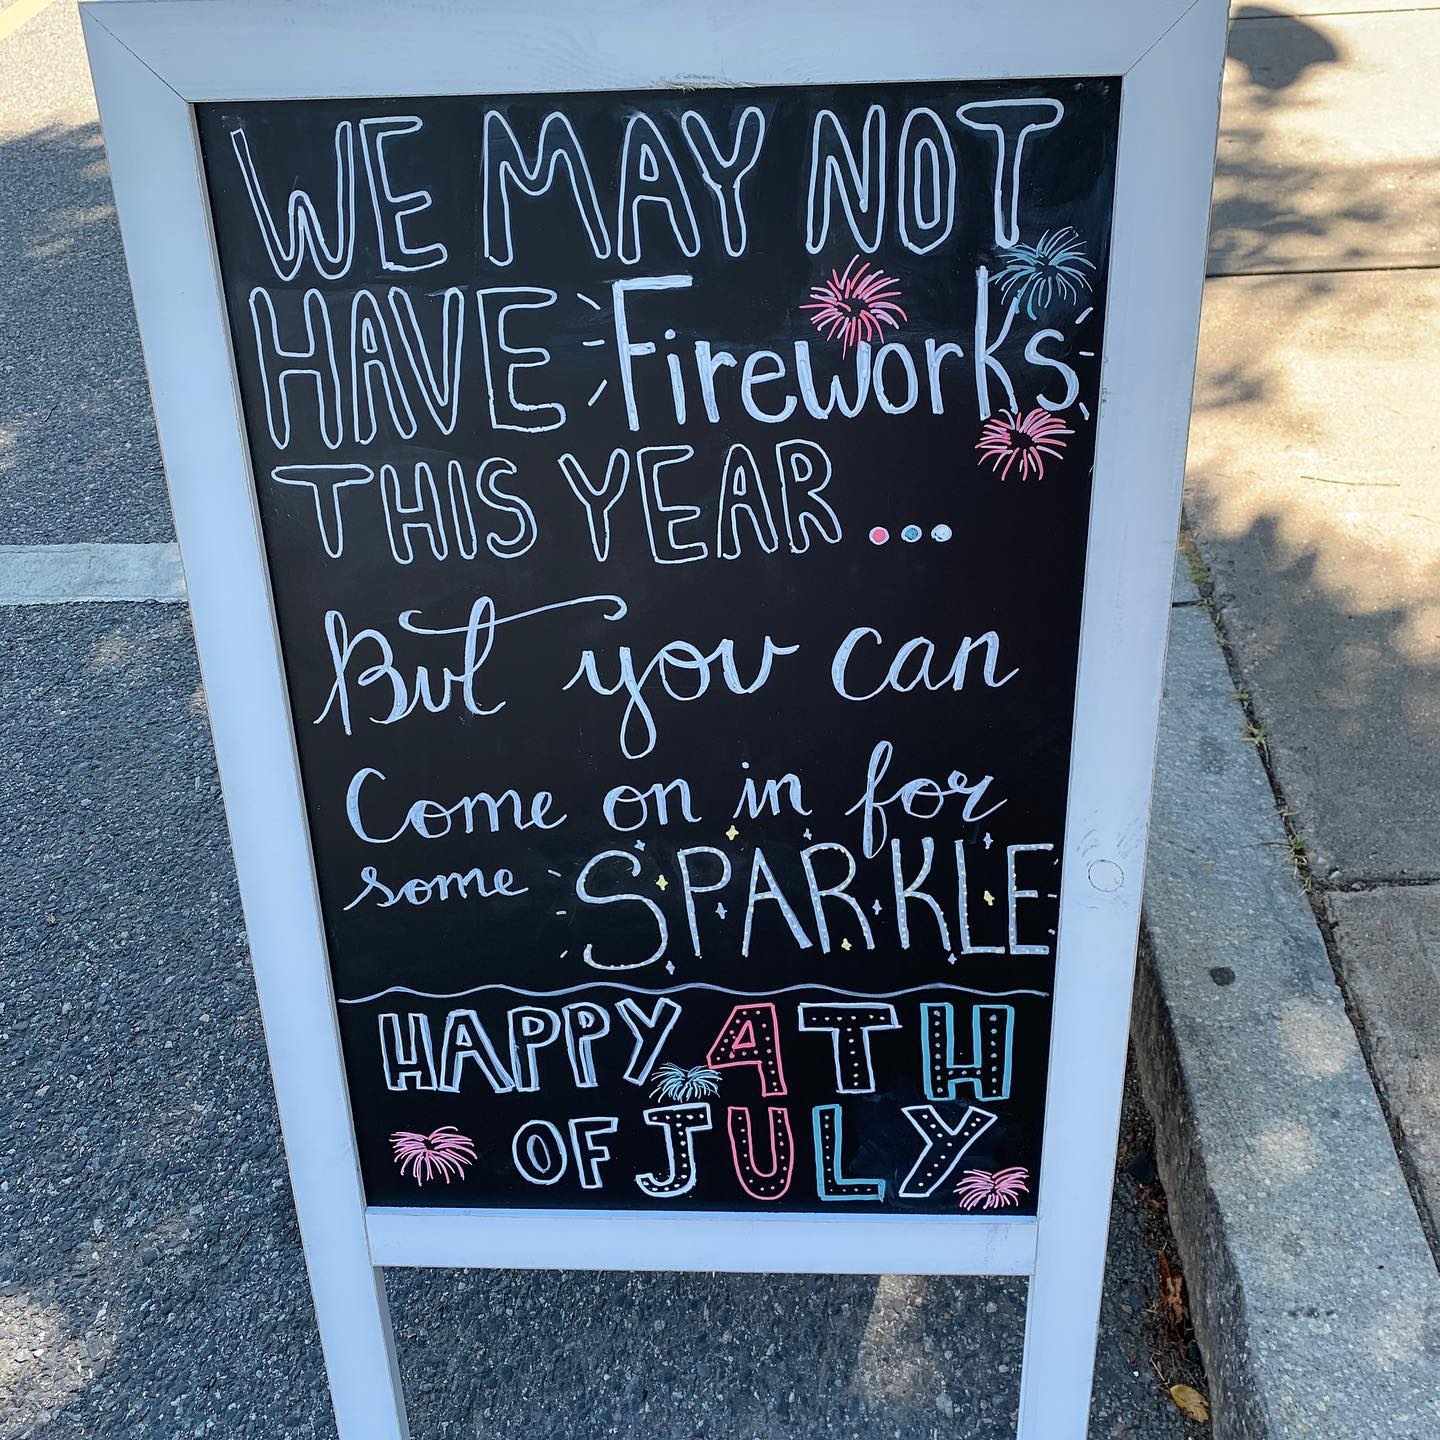 WE MAY NOT
HAVE Fireworks
THIS YEAR...
But you can
Come on in for
some SPARKLE
HAPPY 4TH
OF JULY